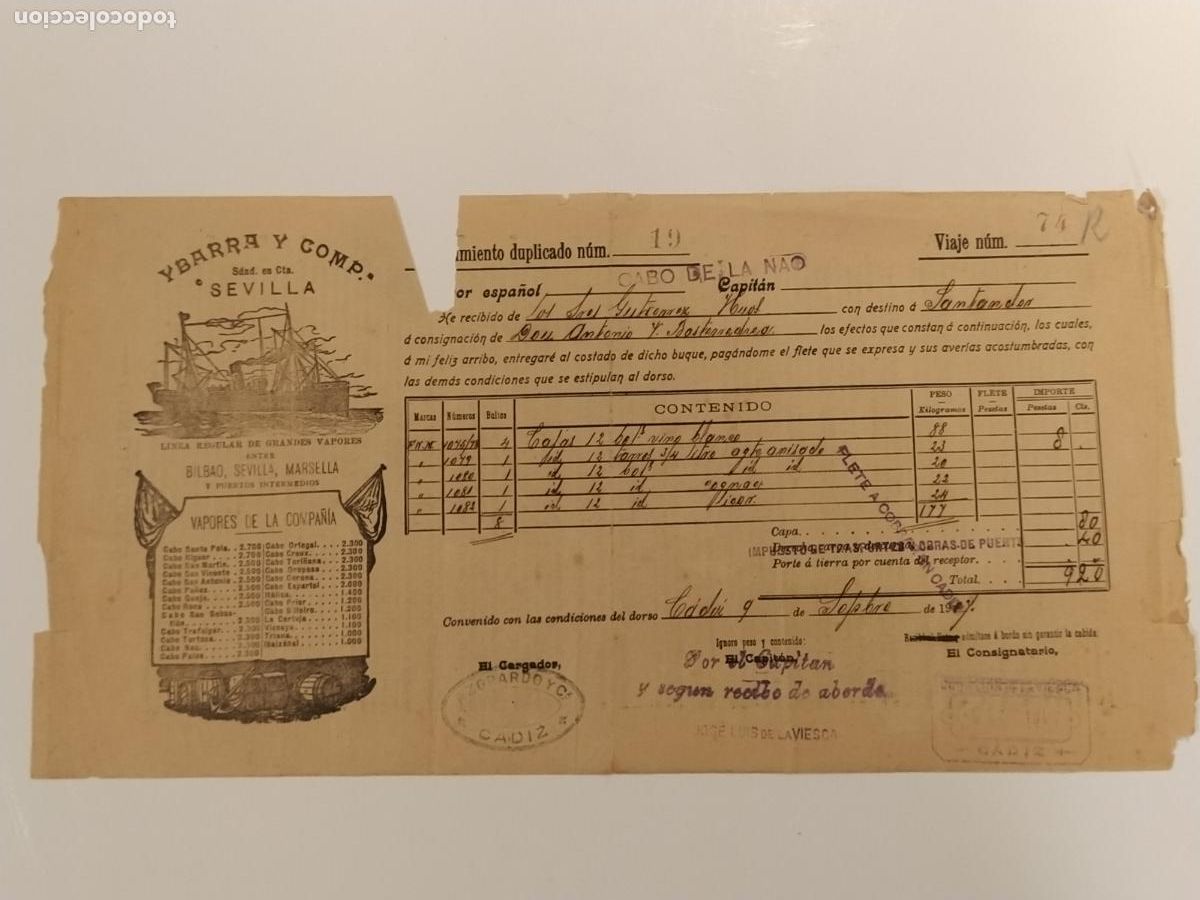 todocoleccion
YBARRA Y COMP.ª
Sdad. en Cta.
SEVILLA
LINEA REGULAR DE GRANDES VAPORES
ENTRE
BILBAO, SEVILLA, MARSELLA
Y PUERTOS INTERMEDIOS
VAPORES DE LA COMPAÑÍA
Cabo Santa Pola. . 2.700 Cabo Ortegal. . 2.300
Cabo Creux. . . 2.300
Cabo San Martin. . 2.500 Cabo Toriñana. . 2.300
Cabo San Vicente . 2.500 Cabo Oropesa . 2.300
Cabo San Antonio . 2.500
Cabo Peñas. Cabo Espartel
Cabo Quejo. Itálica. 1.400
Cabo Roca Cabo Prior. 1.200
Cabo San Sebas- Cabo Silleiro. 1.200
tián. La Cartuja 1.100
Cabo Trafalgar. Vizcaya. 1.100
Cabo Tortosa. Triana. 1.000
Cabo Nao. (Luizaba) 1.000
Cabo Palos
miento duplicado núm. 19
Viaje núm. 74 R
CABO DE LA NAO
or español Capitán
He recibido de Los Sres Gutierrez Hnos con destino á Santander
á consignación de Don Antonio Y Basterrechea los efectos que constan á continuación, los cuales,
á mi feliz arribo, entregaré al costado de dicho buque, pagándome el flete que se expresa y sus averías acostumbradas, con
las demás condiciones que se estipulan al dorso.
Marcas Números Bultos CONTENIDO PESO Kilogramos FLETE Pesetas IMPORTE Pesetas Cts.
4 Cajas 12 bot.s vino blanco 88 8 .
" 1079 1 id 12 tarros 3/4 litro agte anisado 23
" 1080 1 id 12 bot.s id id 20
" 1081 1 id 12 id cognac 22
" 1082 1 id 12 id 24
8 177
FLETE A COBRAR EN CADIZ
Capa. 80
IMPUESTO DE TRASPORTES & OBRAS DE PUERTO 40
Porte á tierra por cuenta del receptor.
Total. 9 20
Convenido con las condiciones del dorso Cádiz 9 de Septbre de 1907.
Ignoro peso y contenido:
admitase á bordo sin garantir la cabida:
El Cargador,
El Capitán,
El Consignatario,
Por el Capitan
Y segun recibo de abordo
CADIZ
JOSÉ LUIS DE LA VIESCA
CADIZ